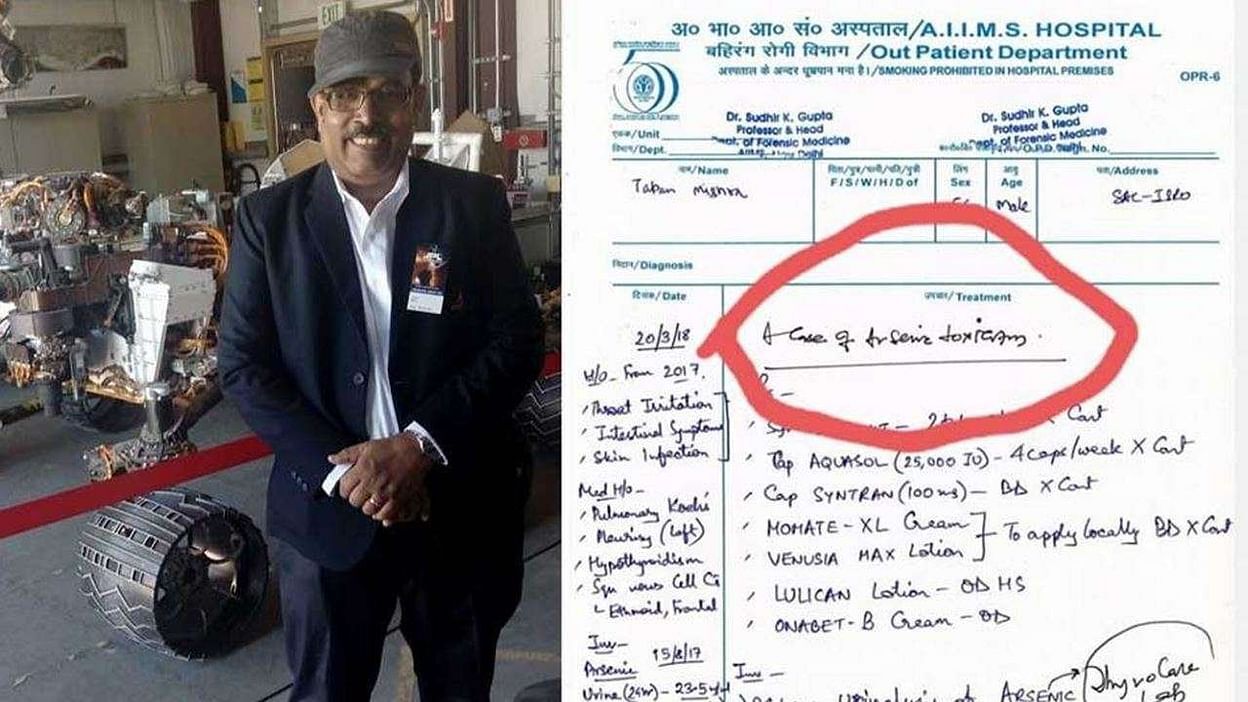 EXIT
अ० भा० आ० सं० अस्पताल/A.I.I.M.S. HOSPITAL
बहिरंग रोगी विभाग /Out Patient Department
अस्पताल के अन्दर धूम्रपान मना है।/SMOKING PROHIBITED IN HOSPITAL PREMISES
OPR-6
Dr. Sudhir K. Gupta
Professor & Head
Dept. of Forensic Medicine
Dr. Sudhir K. Gupta
Professor & Head
Dept. of Forensic Medicine
एकक/Unit
विभाग/Dept.
No.
नाम/Name
F/S/W/H/D of
लिंग
Sex
आयु
Age
पता/Address
Tapan Mishra
Male
SAC-ISRO
निदान/Diagnosis
दिनांक/Date
उपचार/Treatment
20/3/18
A Case of Arsenic toxicity.
H/o - From 2017.
Throat Irritation
Intestinal Symptoms
Skin Infection
Cont
Cap AQUASOL (25,000 IU) - 4 caps/week X Cont
Cap SYNTRAN (100 mg) - BD X Cont
MOMATE-XL Cream
VENUSIA MAX Lotion
To apply locally BD X Cont
LULICAN Lotion - OD HS
ONABET-B Cream - OD
Med H/o -
Pulmonary Koch's
Pleurisy (Left)
Hypothyroidism
Cell Ca
Ethmoid, Frontal
Inv -
Arsenic 15/8/17
Urine (24hr) - 23.5
Inv -
of ARSENIC
ThyroCare
Lab